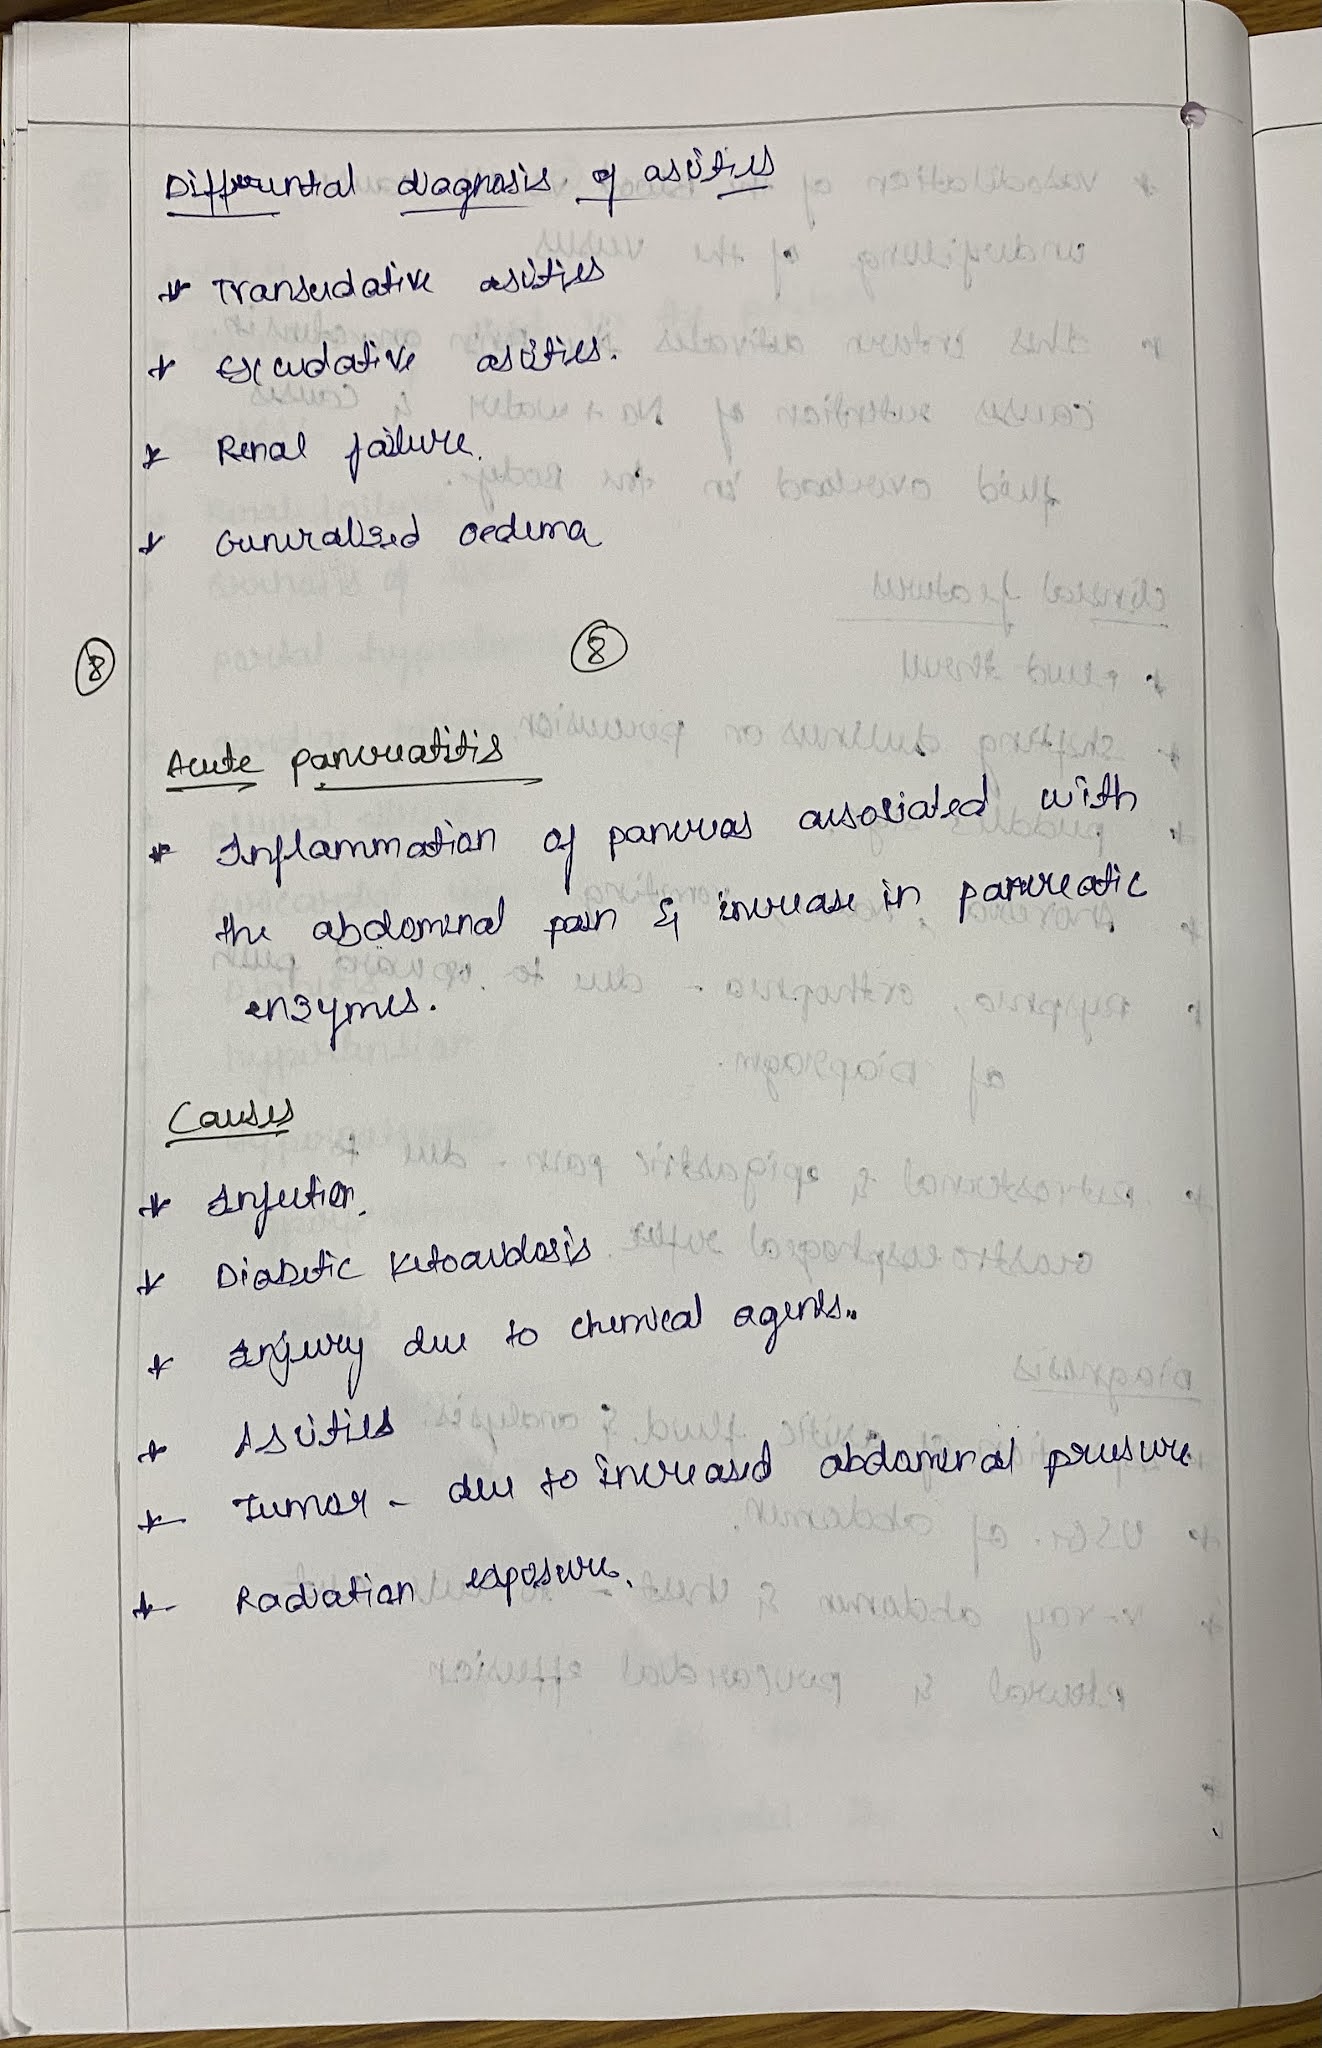 Differential diagnosis of asities
* Transudative asities
* Excudative asities.
* Renal failure.
* Generalised oedema
8 8
Acute pancreatitis
* Inflammation of pancreas associated with
the abdominal pain & increase in pancreatic
enzymes.
Causes
* Infection.
* Diabetic Ketoacidosis
* Injury due to chemical agents..
* Asities
* Tumor - due to increased abdominal pressure
* Radiation exposure.